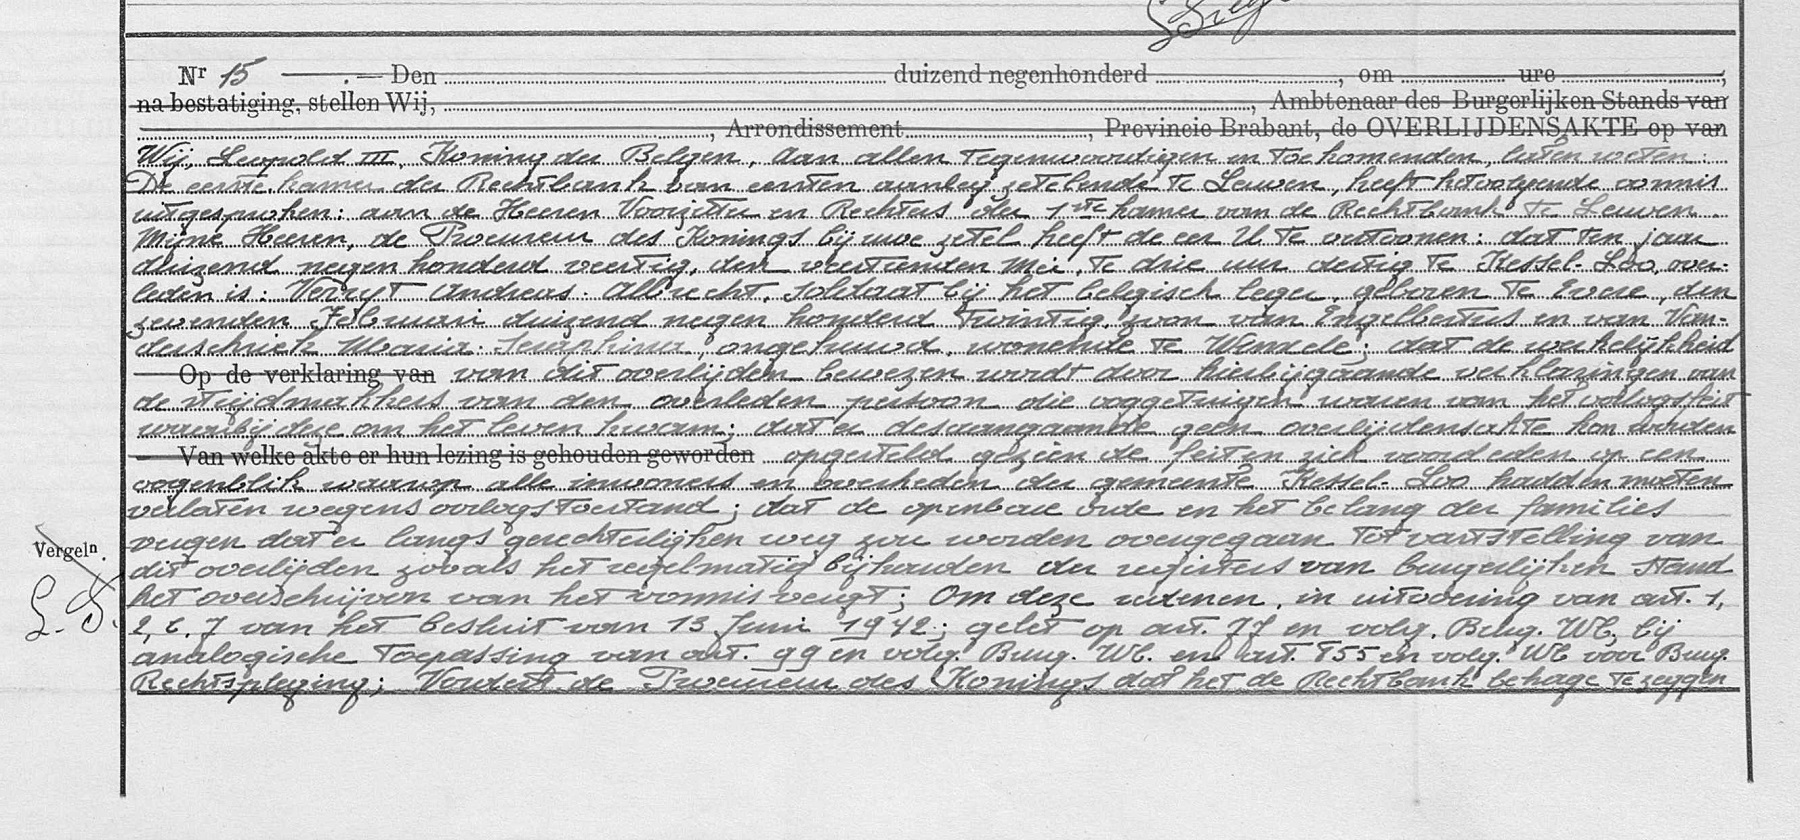 Nr 15 . — Den duizend negenhonderd , om ure ,
na bestatiging, stellen Wij, , Ambtenaar des Burgerlijken Stands van
, Arrondissement , Provincie Brabant, de OVERLIJDENSAKTE op van
Wij, Leopold III, Koning der Belgen, Aan allen tegenwoordigen en toekomenden, laten weten:
De eerste kamer der Rechtbank van eersten aanleg zetelende te Leuven, heeft het volgende vonnis
uitgesproken: aan de Heeren Voorzitter en Rechters der 1ste kamer van de Rechtbank te Leuven
Mijne Heeren, de Procureur des Konings bij uwe zetel heeft de eer U te vertoonen: dat ten jaar
duizend negen honderd veertig, den veertienden Mei, te drie uur dertig te Kessel-Loo, over-
leden is: Verryt Andreas-Albrecht, soldaat bij het belgisch leger, geboren te Evere, den
zevenden Februari duizend negen honderd twintig, zoon van Engelbertus en van Van-
derschriek Maria-Seraphina, ongehuwd, wonende te ; dat de werkelijkheid
Op de verklaring van van dit overlijden bewezen wordt door hierbijgaande verklaringen van
de strijdmakkers van den overleden persoon die ooggetuigen waren van het oorlogsfeit
waarbij deze om het leven kwam; dat er desaangaande geen overlijdensakte kon worden
Van welke akte er hun lezing is gehouden geworden opgesteld gezien de feiten zich voordeden op een
oogenblik waarop alle inwoners en overheden der gemeente Kessel-Loo hadden moeten
verlaten wegens oorlogstoestand; dat de openbare orde en het belang der families
vergen dat er langs gerechterlijken weg zou worden overgegaan tot vaststelling van
Vergeln.
dit overlijden zooals het regelmatig bijhouden der registers van burgerlijken stand
L. D.
het overschrijven van het vonnis vergt; Om deze redenen, in uitvoering van art. 1,
2, 6, 7 van het besluit van 13 Juni 1942; gelet op art. 77 en volg. Burg. Wb, bij
analogische toepassing van art. 99 en volg. Burg. Wb. en art. 855 en volg. Wb voor Burg.
Rechtspleging; Vordert de Procureur des Konings dat het de Rechtbank behage te zeggen